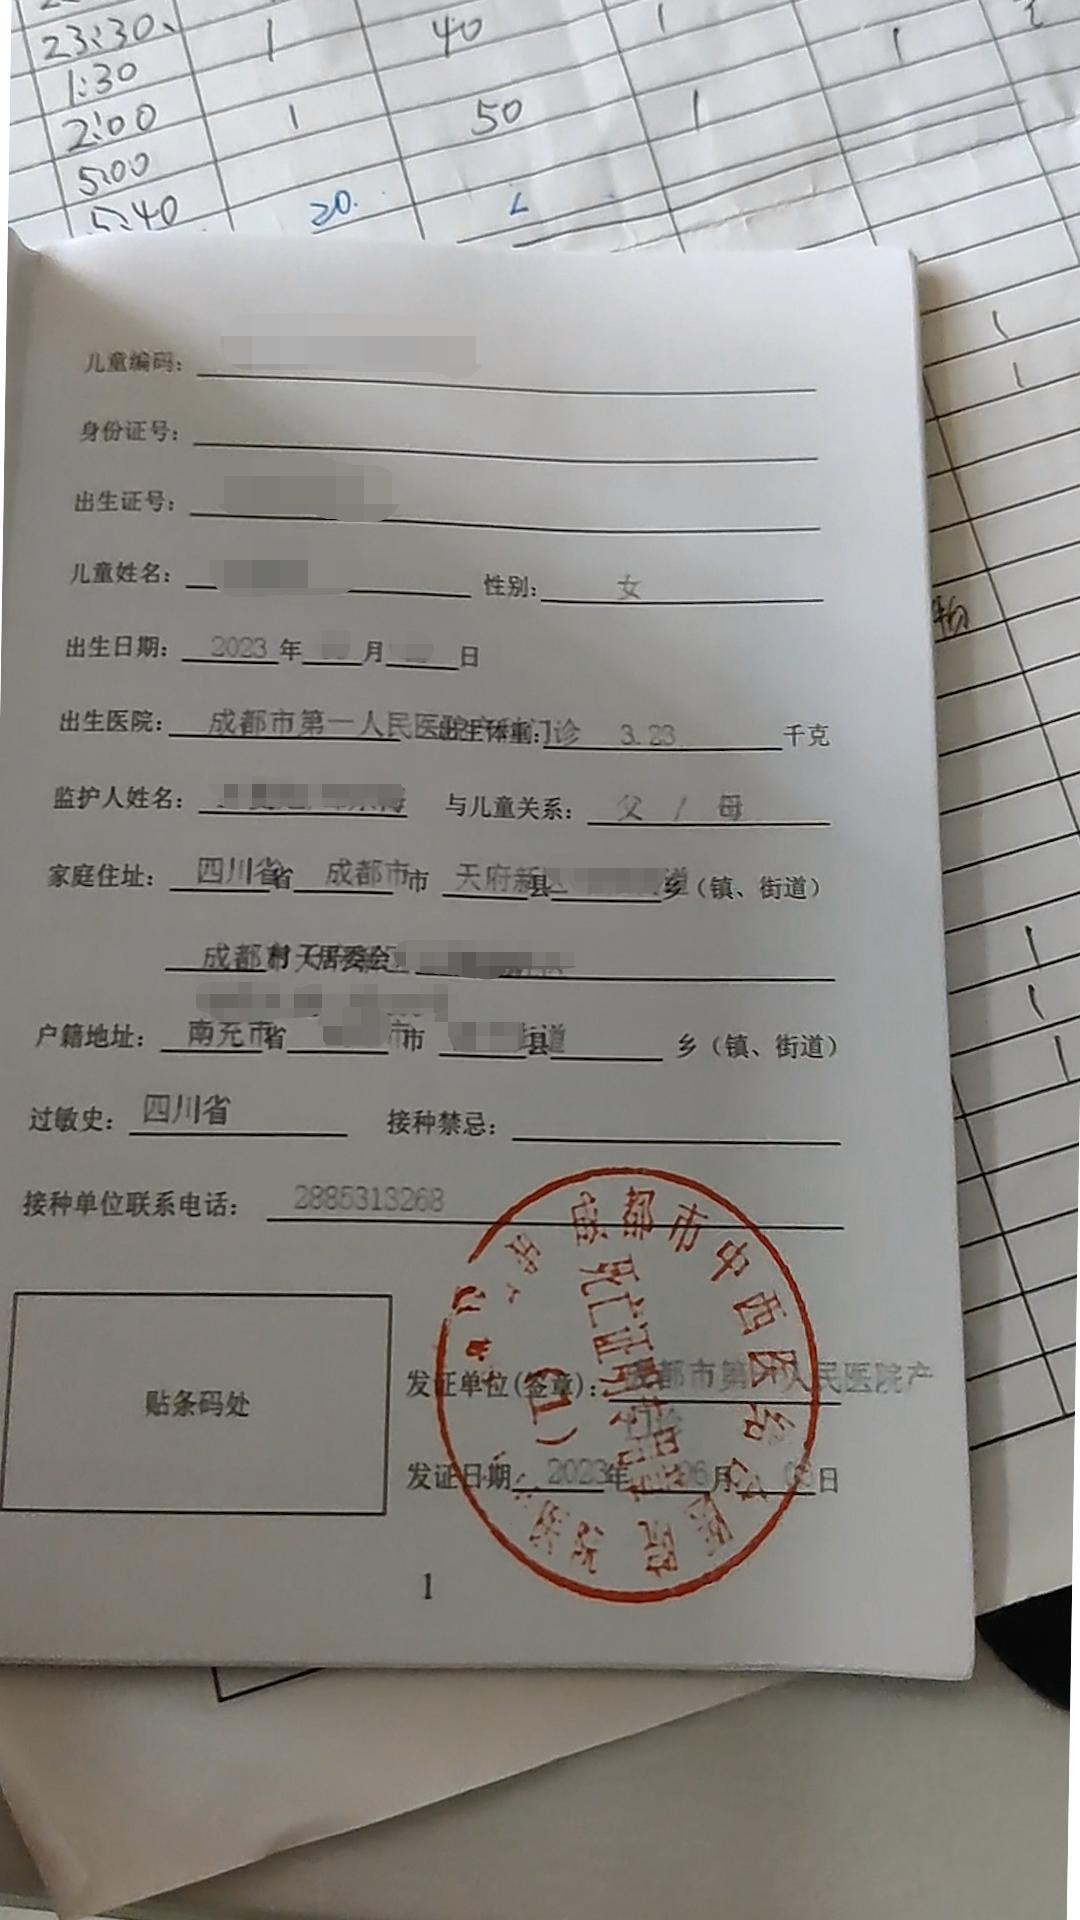 23:30 1 40 1
1:30 1
2:00 1 50 1
5:00
5:40 20.
儿童编码:
身份证号:
出生证号:
儿童姓名: 性别: 女
出生日期: 2023 年 月 日
出生医院: 成都市第一人民医院产科门诊 出生体重: 3.23 千克
监护人姓名: 与儿童关系: 父 / 母
家庭住址: 四川省省 成都市市 天府新区县 乡（镇、街道）
成都市天 村 居委会
户籍地址: 南充市省 市市 县街道 乡（镇、街道）
过敏史: 四川省 接种禁忌:
接种单位联系电话: 2885313268
成都市中西医结合医院
死亡证明专用章
(1)
贴条码处
发证单位(签章): 成都市第一人民医院产
科门诊
发证日期 2023年 06月 日
1